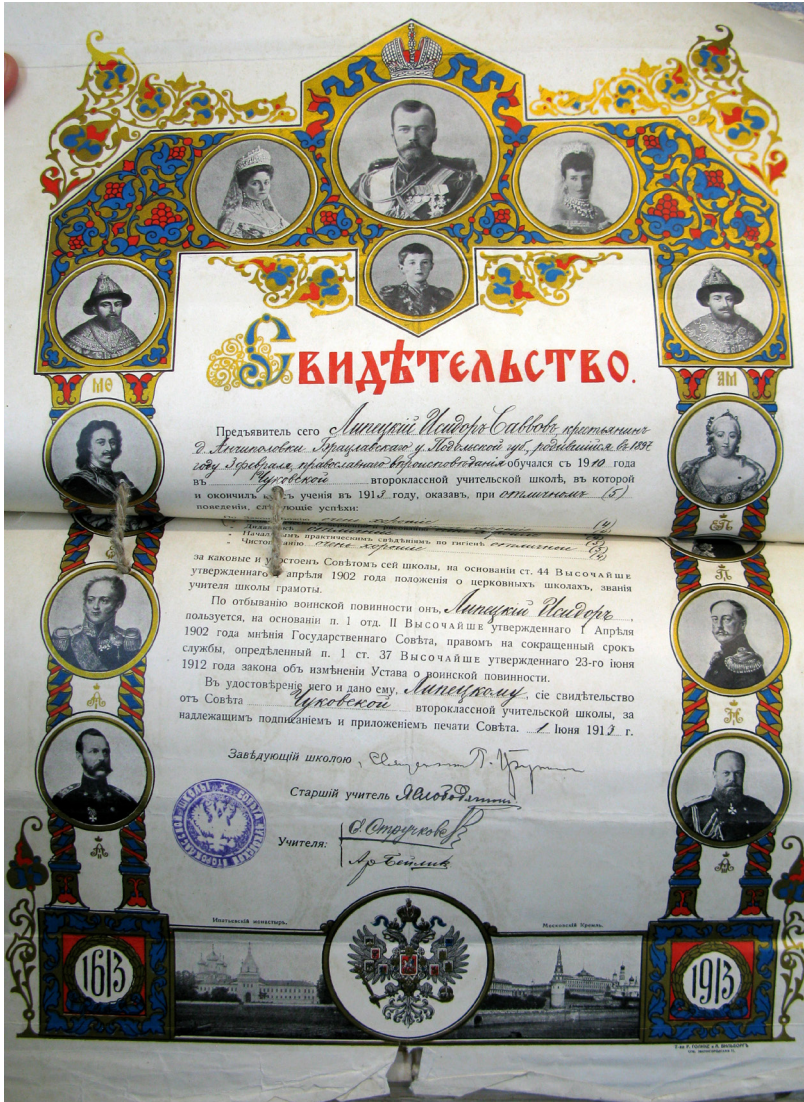 Свидѣтельство.
МѲ
АМ
Предъявитель сего Липецкій Исидоръ Саввовъ, крестьянинъ
д. Анчиполовки Брацлавскаго у. Подольской губ., родившійся въ 1897
году 3 февраля, православнаго вѣроисповѣданія обучался съ 1910 года
въ Чуковской второклассной учительской школѣ, въ которой
и окончилъ курсъ ученія въ 1913 году, оказавъ, при отличномъ (5)
поведеніи, слѣдующіе успѣхи:
очень хорошіе (4)
Начальнымъ практическимъ свѣдѣніямъ по гигіенѣ отличные (5)
Чистописанію очень хорошіе (4)
за каковые и удостоенъ Совѣтомъ сей школы, на основаніи ст. 44 Высочайше
утвержденнаго апрѣля 1902 года положенія о церковныхъ школахъ, званія
учителя школы грамоты.
По отбыванію воинской повинности онъ, Липецкій Исидоръ,
пользуется, на основаніи п. 1 отд. II Высочайше утвержденнаго 1 Апрѣля
1902 года мнѣнія Государственнаго Совѣта, правомъ на сокращенный срокъ
службы, опредѣленный п. 1 ст. 37 Высочайше утвержденнаго 23-го іюня
1912 года закона объ измѣненіи Устава о воинской повинности.
Въ удостовѣреніе чего и дано ему, Липецкому, сіе свидѣтельство
отъ Совѣта Чуковской второклассной учительской школы, за
надлежащимъ подписаніемъ и приложеніемъ печати Совѣта. 1 Іюня 1913 г.
Завѣдующій школою, Священникъ П.
Старшій учитель
Учителя:
Ипатьевскій монастырь.
Московскій Кремль.
1613
1913
Т-во Р. Голике и А. Вильборгъ